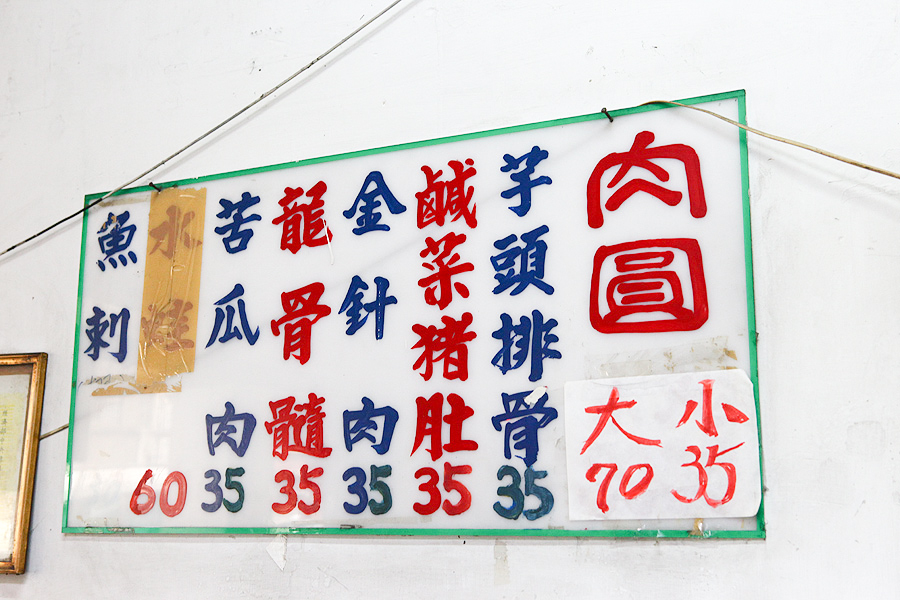 肉圓
小 35
大 70
芋頭排骨 35
鹹菜豬肚 35
金針肉 35
龍骨髓 35
苦瓜肉 35
水蛙
魚刺
60